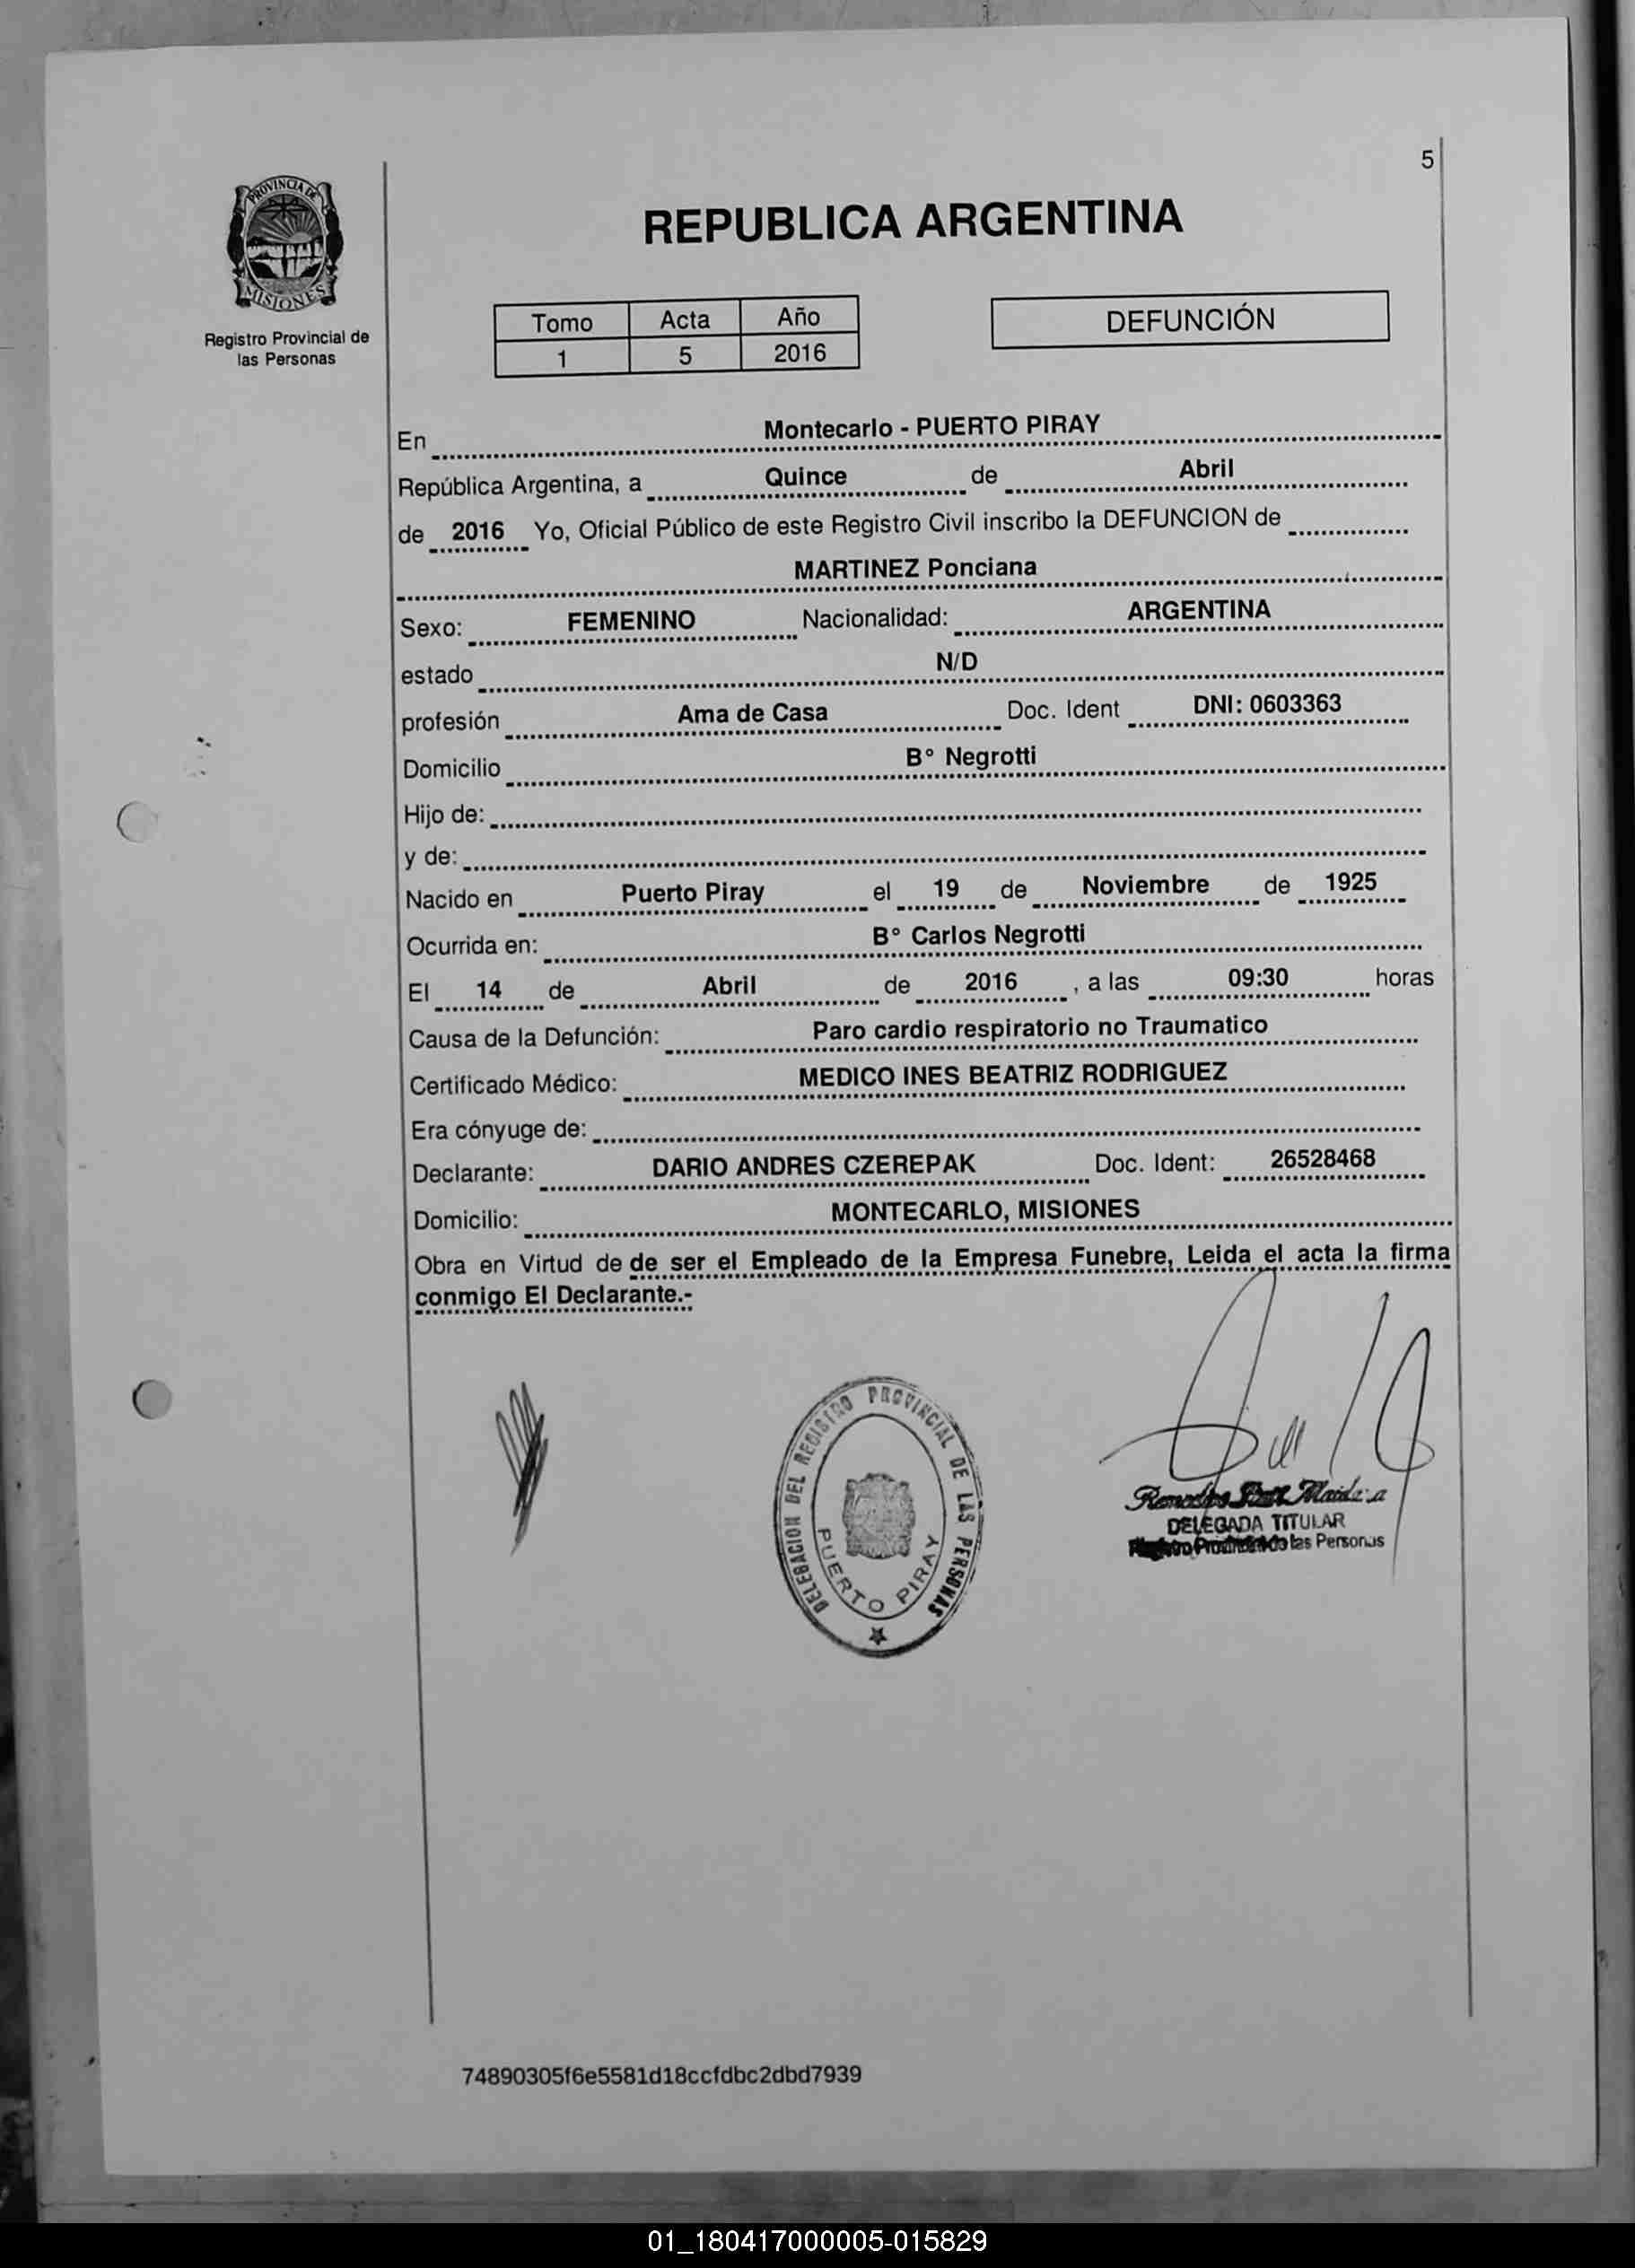 5
PROVINCIA DE
MISIONES
Registro Provincial de
las Personas
REPUBLICA ARGENTINA
Tomo Acta Año
1 5 2016
DEFUNCIÓN
En Montecarlo - PUERTO PIRAY
República Argentina, a Quince de Abril
de 2016 Yo, Oficial Público de este Registro Civil inscribo la DEFUNCION de
MARTINEZ Ponciana
Sexo: FEMENINO Nacionalidad: ARGENTINA
estado N/D
profesión Ama de Casa Doc. Ident DNI: 0603363
Domicilio B° Negrotti
Hijo de:
y de:
Nacido en Puerto Piray el 19 de Noviembre de 1925
Ocurrida en: B° Carlos Negrotti
El 14 de Abril de 2016 , a las 09:30 horas
Causa de la Defunción: Paro cardio respiratorio no Traumatico
Certificado Médico: MEDICO INES BEATRIZ RODRIGUEZ
Era cónyuge de:
Declarante: DARIO ANDRES CZEREPAK Doc. Ident: 26528468
Domicilio: MONTECARLO, MISIONES
Obra en Virtud de de ser el Empleado de la Empresa Funebre, Leida el acta la firma
conmigo El Declarante.-
DELEGACION DEL REGISTRO PROVINCIAL DE LAS PERSONAS
PUERTO PIRAY
DELEGADA TITULAR
las Personas
74890305f6e5581d18ccfdbc2dbd7939
01_180417000005-015829